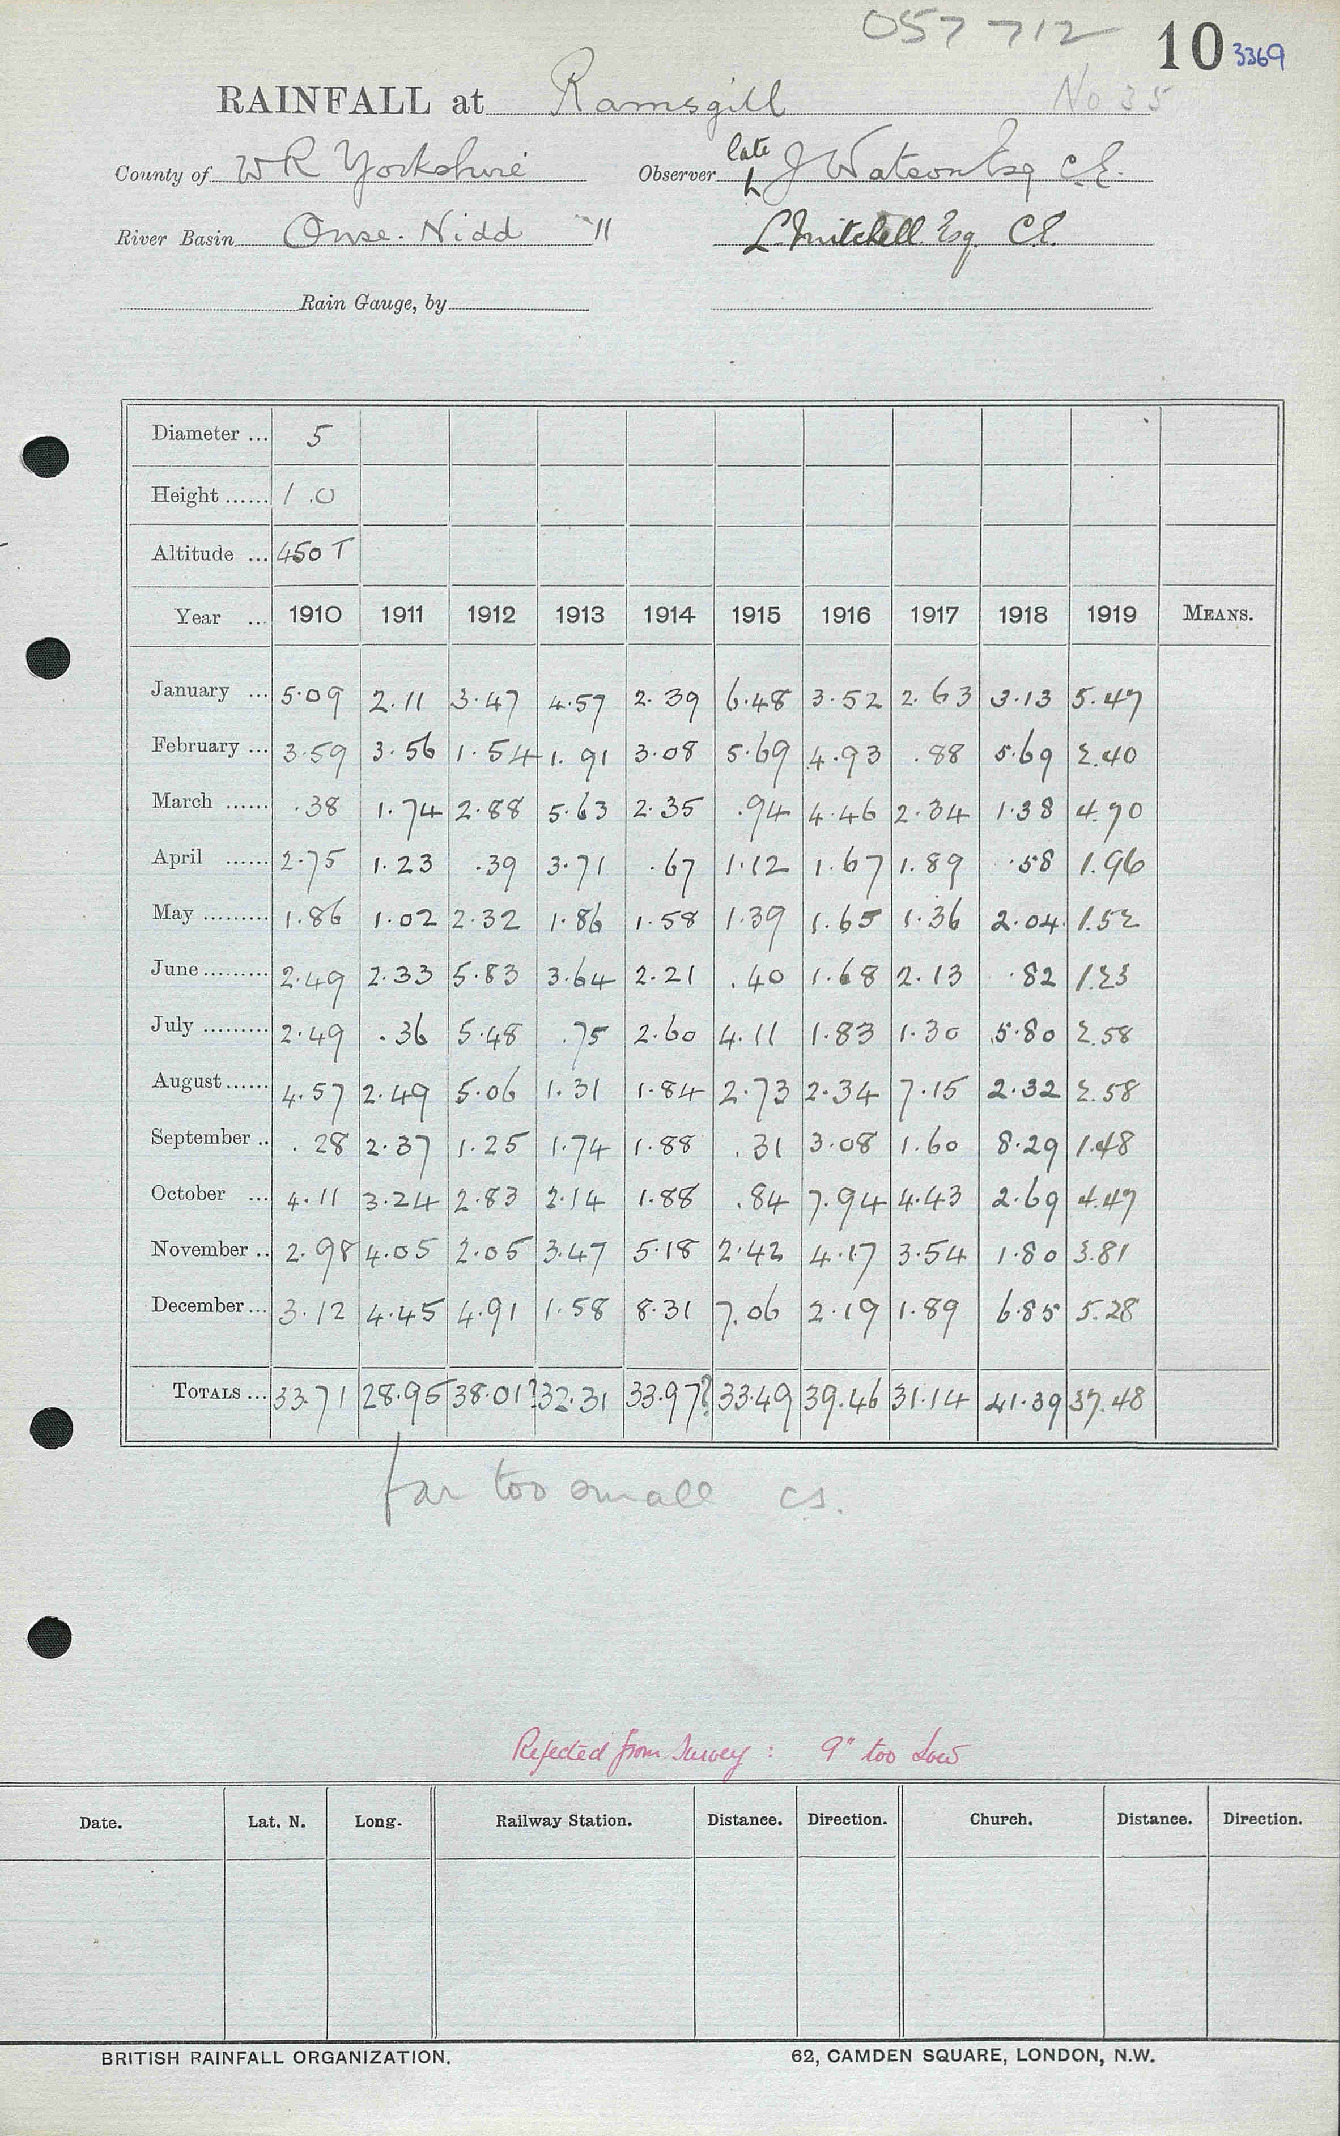 057 712
10 3369
RAINFALL at Ramsgill No 35
County of WR Yorkshire Observer late J Watson Esq C.E.
River Basin Ouse. Nidd "11 L. Mitchell Esq. CE.
Rain Gauge, by
Diameter ... 5
Height ...... 1.0
Altitude ... 450 T
Year ... 1910 1911 1912 1913 1914 1915 1916 1917 1918 1919 MEANS.
January ... 5.09 2.11 3.47 4.57 2.39 6.48 3.52 2.63 3.13 5.47
February ... 3.59 3.56 1.54 1.91 3.08 5.69 4.93 .88 5.69 2.40
March ...... .38 1.74 2.88 5.63 2.35 .94 4.46 2.34 1.38 4.70
April ...... 2.75 1.23 .39 3.71 .67 1.12 1.67 1.89 .58 1.96
May ......... 1.86 1.02 2.32 1.86 1.58 1.39 1.65 1.36 2.04 1.52
June ......... 2.49 2.33 5.83 3.64 2.21 .40 1.68 2.13 .82 1.23
July ......... 2.49 .36 5.48 .75 2.60 4.11 1.83 1.30 5.80 2.58
August ...... 4.57 2.49 5.06 1.31 1.84 2.73 2.34 7.15 2.32 2.58
September .. .28 2.37 1.25 1.74 1.88 .31 3.08 1.60 8.29 1.48
October ... 4.11 3.24 2.83 2.14 1.88 .84 7.94 4.43 2.69 4.47
November .. 2.98 4.05 2.05 3.47 5.18 2.42 4.17 3.54 1.80 3.81
December ... 3.12 4.45 4.91 1.58 8.31 7.06 2.19 1.89 6.85 5.28
TOTALS ... 33.71 28.95 38.01? 32.31 33.97? 33.49 39.46 31.14 41.39 37.48
far too small cs.
Rejected from Survey : 9" too Low
Date. Lat. N. Long. Railway Station. Distance. Direction. Church. Distance. Direction.
BRITISH RAINFALL ORGANIZATION. 62, CAMDEN SQUARE, LONDON, N.W.